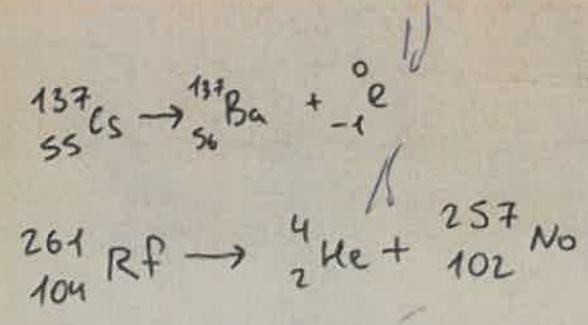 ¹³⁷₅₅Cs → ¹³⁷₅₆Ba + ⁰₋₁e
²⁶¹₁₀₄Rf → ⁴₂He + ²⁵⁷₁₀₂No